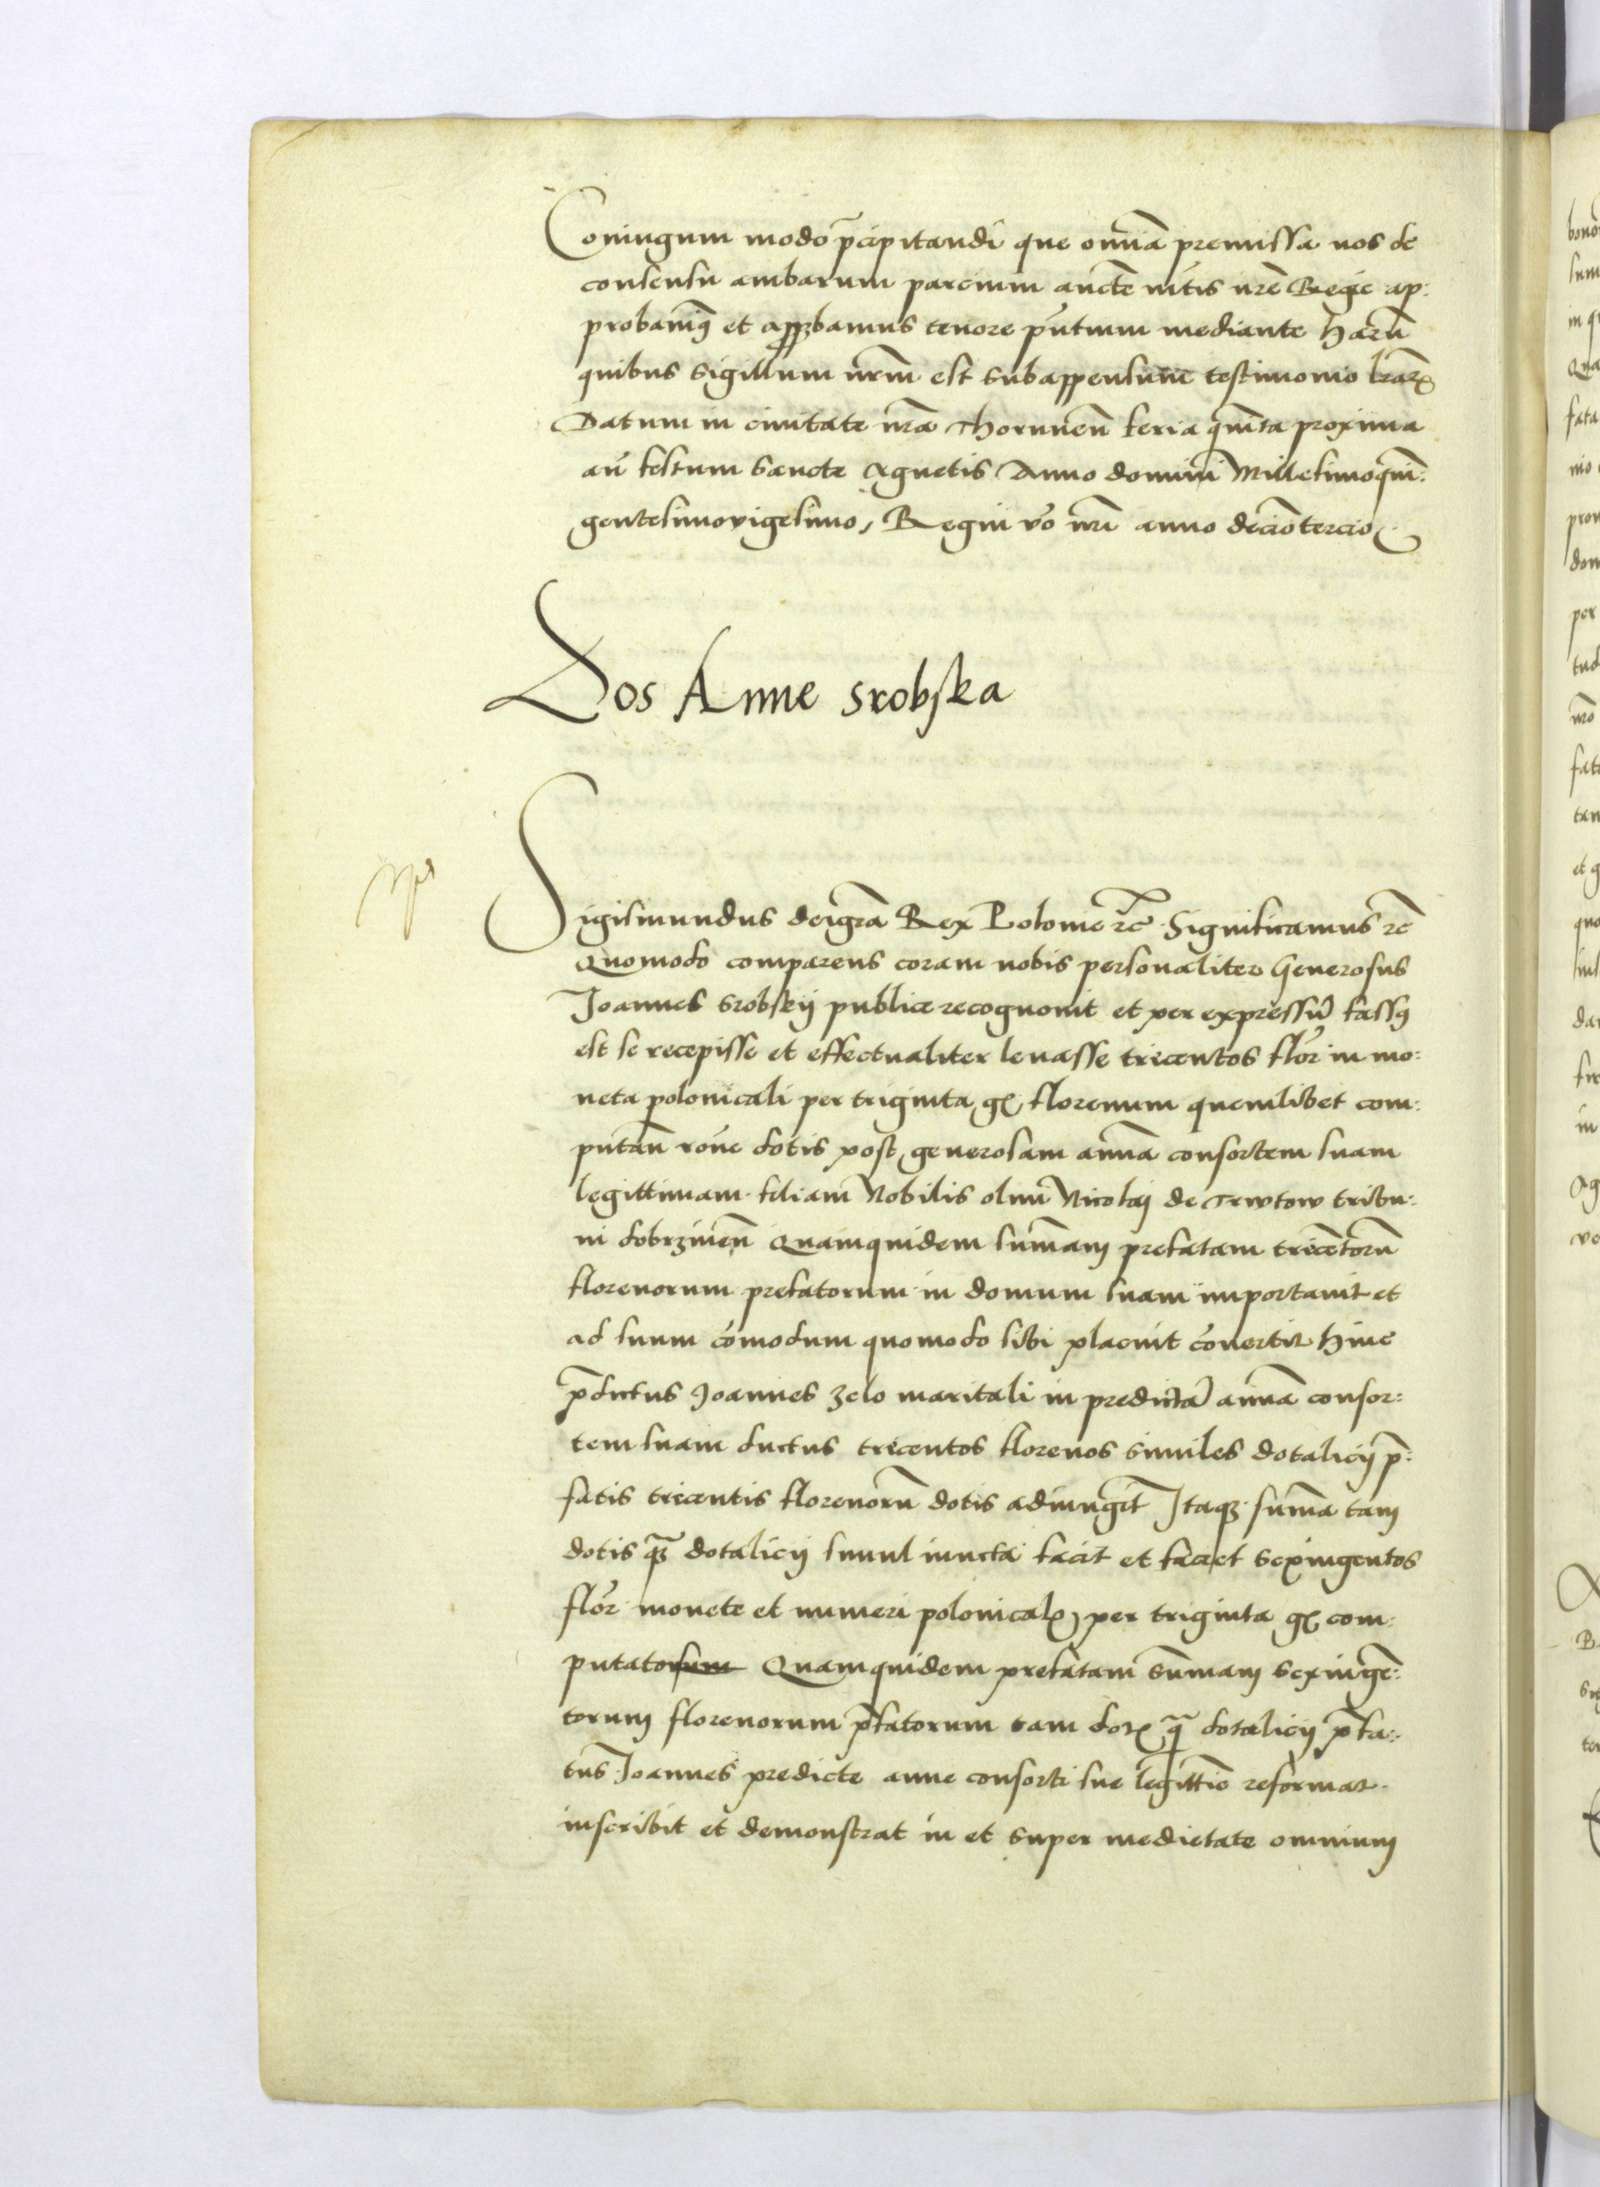 Coniugum modo p̄cipitandi que omnīa premissa nos de
consensu ambarum parcium aucte ntītis nr̄e Regie ap:
probauimꝰ et approbamus tenore pñtium mediante harū
quibus Sigillum nr̄m est subappensum testimonio lr̄arꝝ
Datum in ciuitate nr̄a Thorunen̄ feria qūīta proxima
añ festum Sancte Agnetis Anno domini Millesimoquin:
gentesimovigesimo, Regni v̄o nr̄i anno deciōtercio
Dos Anne srobska
Sigismundus deigr̄a Rex Polonie ꝛc̄ Significamus ꝛc̄
Quomodo comparens coram nobis personaliter Generosus
Joannes Srobskij publice recognouit et per expressū fassꝰ
est se recepisse et effectualiter leuasse trecentos flor̄ in mo:
neta polonicali per triginta gꝭ florenum quemlibet com:
putan̄ rōne dotis post generosam annā consortem suam
legittimam filiam Nobilis olim̄ Nicolaj de Trutow tribu:
ni dobrzinen̄ Quamquidem sum̄am prefatam trecētorū
florenorum prefatorum in domum suam importauit et
ad suum cōmodum quomodo sibi placuit cōuertit Hinc
p̄dictus Joannes zelo maritali in predictā annā consor:
tem suam ductus trecentos florenos similes dotalicij p̄:
fatis trecentis florenorū dotis adiungit Itaqꝫ sum̄a tam
dotis qꝫ̄ dotalicij simul iuncta facit et faciet sexingentos
flor̄ monete et numeri polonicalꝭ per triginta gꝭ com
putatorum Quamquidem prefatam sum̄am sexingē:
torum florenorum p̄fatorum tam dotꝭ q̄ dotalicij p̄fa:
tus Joannes predicte anne consorti sue legittiē reformat
inscribit et demonstrat in et super medietate omnium